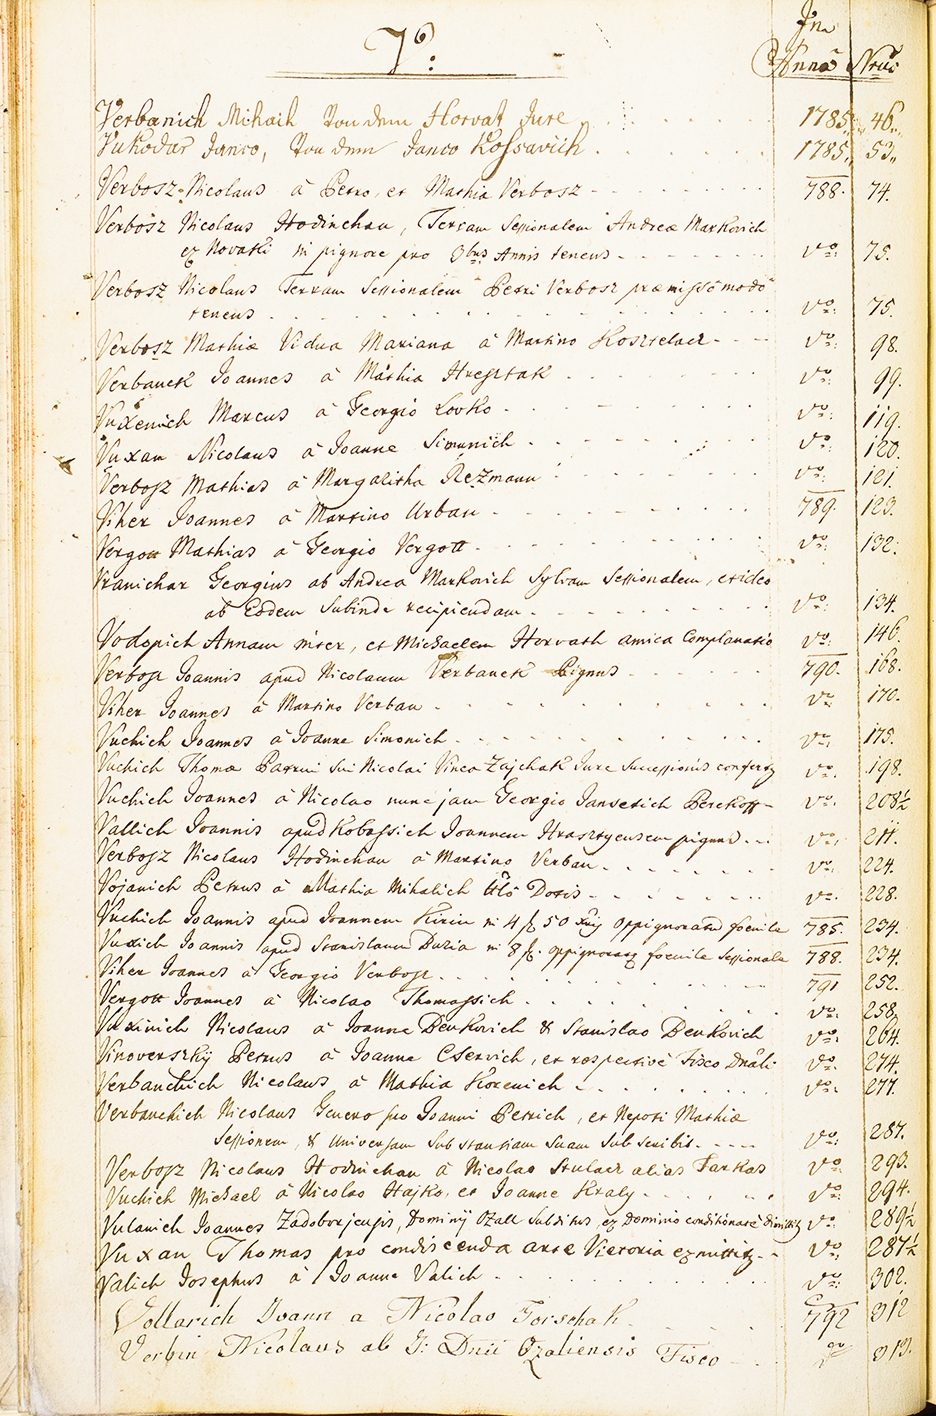 V:
In
Anno Nrus
Verbanich Mihaih Von dem Horvat Jure 1785 46.
Vukodar Janco, Von dem Janco Kossaviih 1785 53.
Verbosz Nicolaus à Petro, et Mathia Verbosz 788. 74.
Verbosz Nicolaus Hodinchan, Terram Sessionalem Andreæ Markovich
ex Novaki in pignore pro 3bus Annis tenens do: 75.
Verbosz Nicolaus Terram Sessionalem Petri Verbosz præmisso modo
tenens do: 75.
Verbosz Mathiæ Vidua Mariana à Martino Kosztelacz do: 98.
Verbanek Joannes à Mathia Hresztak do: 99.
Vuxenich Marcus à Georgio Lovko do: 119.
Vuxan Nicolaus à Joanne Simunich do: 120.
Verbosz Mathias à Margalitha Rezmann do: 121.
Viher Joannes à Martino Urban 789. 123.
Vergott Mathias à Georgio Vergott do: 132.
Vranichar Georgius ab Andrea Markovich Sylvam Sessionalem, et ideo
ab Eodem Subinde recipiendam do: 134.
Vodopich Annam inter, et Michaelem Horvath amica Complanatio do: 146.
Verbosz Joannis apud Nicolaum Verbanek Pignus 790. 168.
Viher Joannes à Martino Verban do 170.
Vuchich Joannes à Joanne Simonich do: 175.
Vuchich Thomæ Patrui sui Nicolai Vinea Zajchak Jure Successionis confertur do: 198.
Vuchich Joannes à Nicolao nunc jam Georgio Jansetich do: 208½
Vallich Joannis apud Kobassich Joannem pignus do: 211.
Verbosz Nicolaus Hodinchan à Martino Verban do: 224.
Vojanich Petrus à Mathia Mihalich Dotis do: 228.
Vuchich Joannis apud Joannem Kirin in 4 f 50 oppignoratum foenile 785. 234.
Vuxich Joannis apud Stanislaum Duzia in 8 f. oppignoratum foenile Sessionale 788. 234.
Viher Joannes à Georgio Verbosz 791 252.
Vergott Joannes à Nicolao Thomassich do: 258
Vuxinich Nicolaus à Joanne Benkovich & Stanislao Benkovich do: 264.
Vinoverszky Petrus à Joanne Cservich, et respective Fisco Dnali do: 274.
Verbanchich Nicolaus à Mathia Korenich do: 277.
Verbanchich Nicolaus Genero suo Joanni Petrich, et Nepoti Mathiæ
Sessionem, & Universam Substantiam Suam Subscribit do: 287.
Verbosz Nicolaus Hodinchan à Nicolao Stulacz alias Farkas do: 293.
Vuchich Michael à Nicolao Hajko, et Joanne Kraly do: 294.
Vulanich Joannes Dominy Ozall Subditus, ex Dominio conditionate dimittitur do: 289½
Vuxan Thomas pro condiscenda arte Victoria emittitur do: 287½
Valich Josephus à Joanne Valich do: 302.
Vollarich Ivann a Nicolao Forschak 792 312
Verbin Nicolaus ab J: Dnii Ozaliensis Fisco do 313.